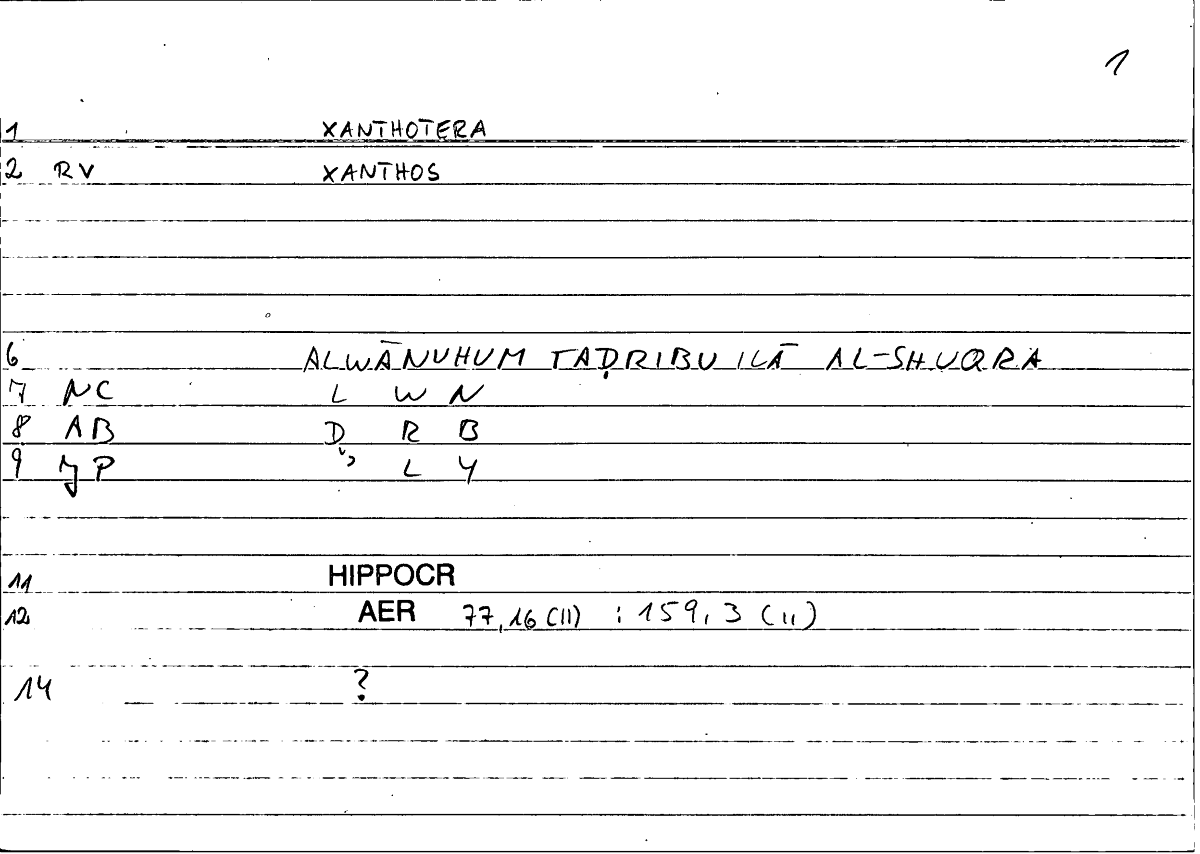 1
1 XANTHOTERA
2 RV XANTHOS
6 ALWĀNUHUM TAḌRIBU ILĀ AL-SHUQRA
7 NC L W N
8 AB Ḍ R B
9 JP ʾ L Y
11 HIPPOCR
12 AER 77,16 (11) : 159,3 (11)
14 ?